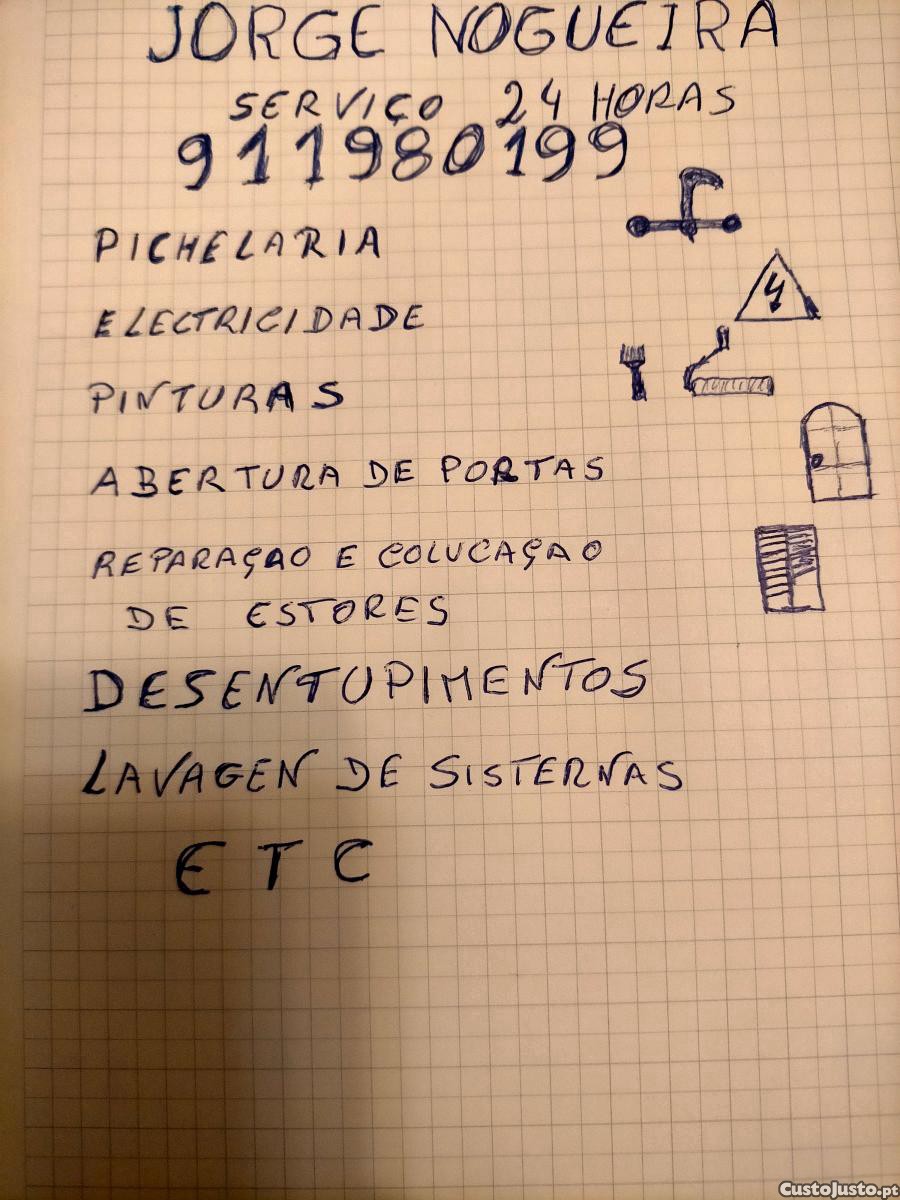 JORGE NOGUEIRA
SERVIÇO 24 HORAS
911980199
PICHELARIA
ELECTRICIDADE
PINTURAS
ABERTURA DE PORTAS
REPARAÇAO E COLUCAÇAO
DE ESTORES
DESENTUPIMENTOS
LAVAGEN DE SISTERNAS
ETC
CustoJusto.pt